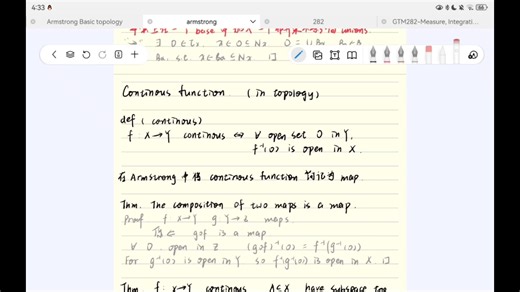 4:33
Armstrong Basic topology
armstrong
282
GTM282-Measure, Integrati...
Continous function (in topology)
def (continous)
f X→Y continous ⇔ ∀ open set O in Y,
f⁻¹(O) is open in X.
Armstrong 中 continous function map
Thm. The composition of two maps is a map.
Proof f X→Y g Y→Z maps
gof is a map
∀ O open in Z (gof)⁻¹(O) = f⁻¹(g⁻¹(O))
For g⁻¹(O) is open in Y so f⁻¹(g⁻¹(O)) is open in X. []
Thm f: X→Y continous A⊆X have subspace top